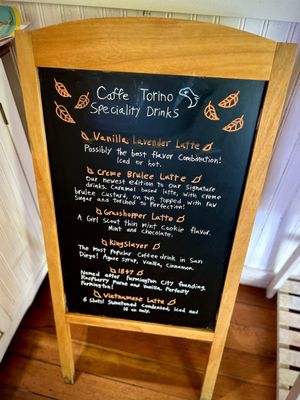 Caffe Torino
Speciality Drinks
Vanilla Lavender Latte
Possibly the best flavor combination!
Iced or hot.
Creme Brulee Latte
Our newest edition to our signature
drinks. Caramel based latte, with creme
brulee custard, on top. Topped with raw
Sugar and torched to Perfection!
Grasshopper Latte
A Girl Scout thin mint cookie flavor.
Mint and chocolate.
Kingslayer
The most Popular Coffee drink in San
Diego! Agave syrup, Vanilla, Cinnamon.
1847
Named after Farmington City founding.
Raspberry Puree and vanilla. Perfectly
Farmington!
Vietnamese Latte
6 Shots! Sweetened condensed, iced and
16 oz only.